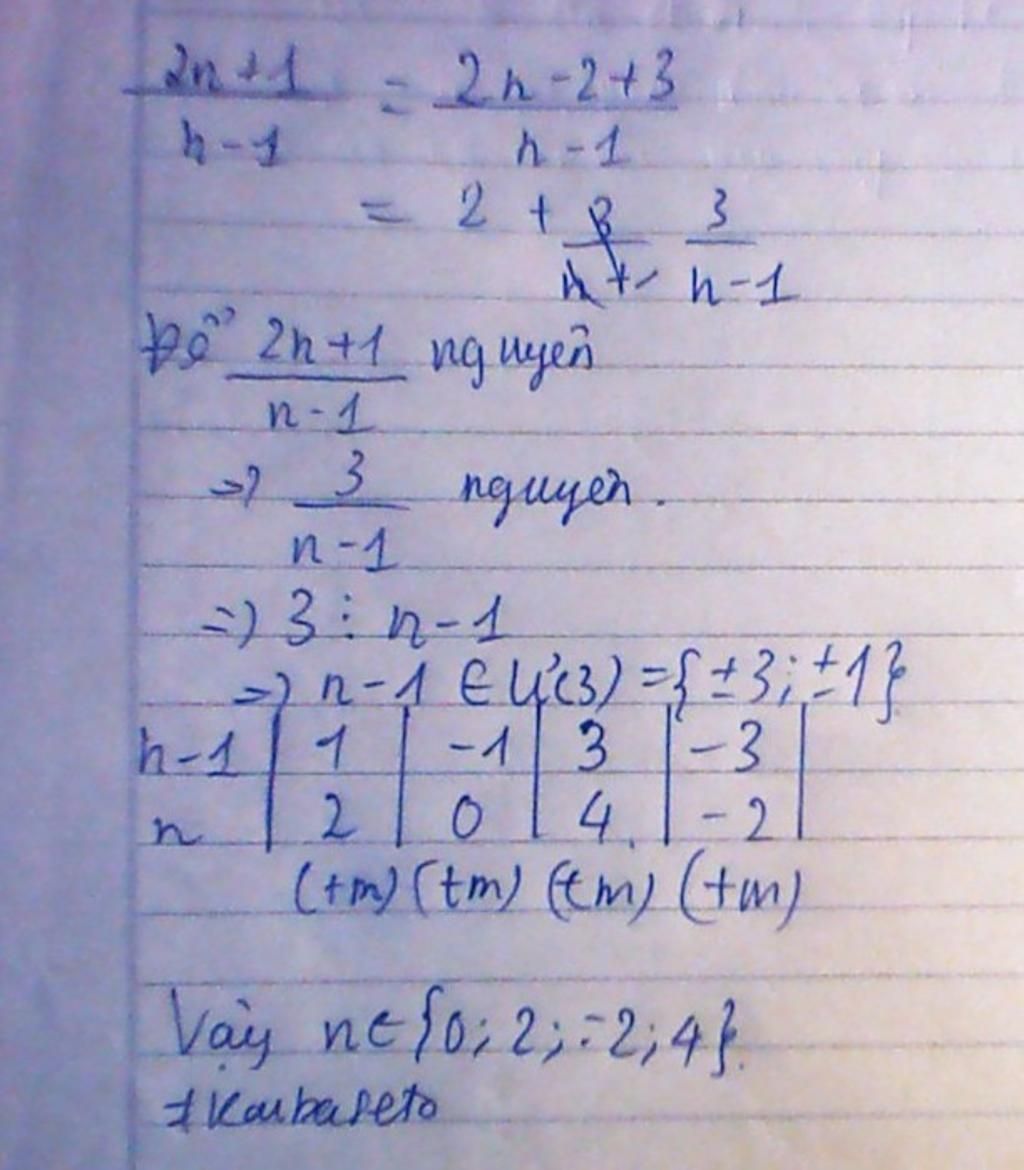 2n+1/n-1 = 2n-2+3/n-1
= 2 + 3/n-1
Để 2n+1/n-1 nguyên
=> 3/n-1 nguyên.
=> 3 ⋮ n-1
=> n-1 ∈ Ư(3) = {±3; ±1}
n-1 | 1 | -1 | 3 | -3 |
n | 2 | 0 | 4 | -2 |
(tm) (tm) (tm) (tm)
Vậy n∈{0; 2; -2; 4}.